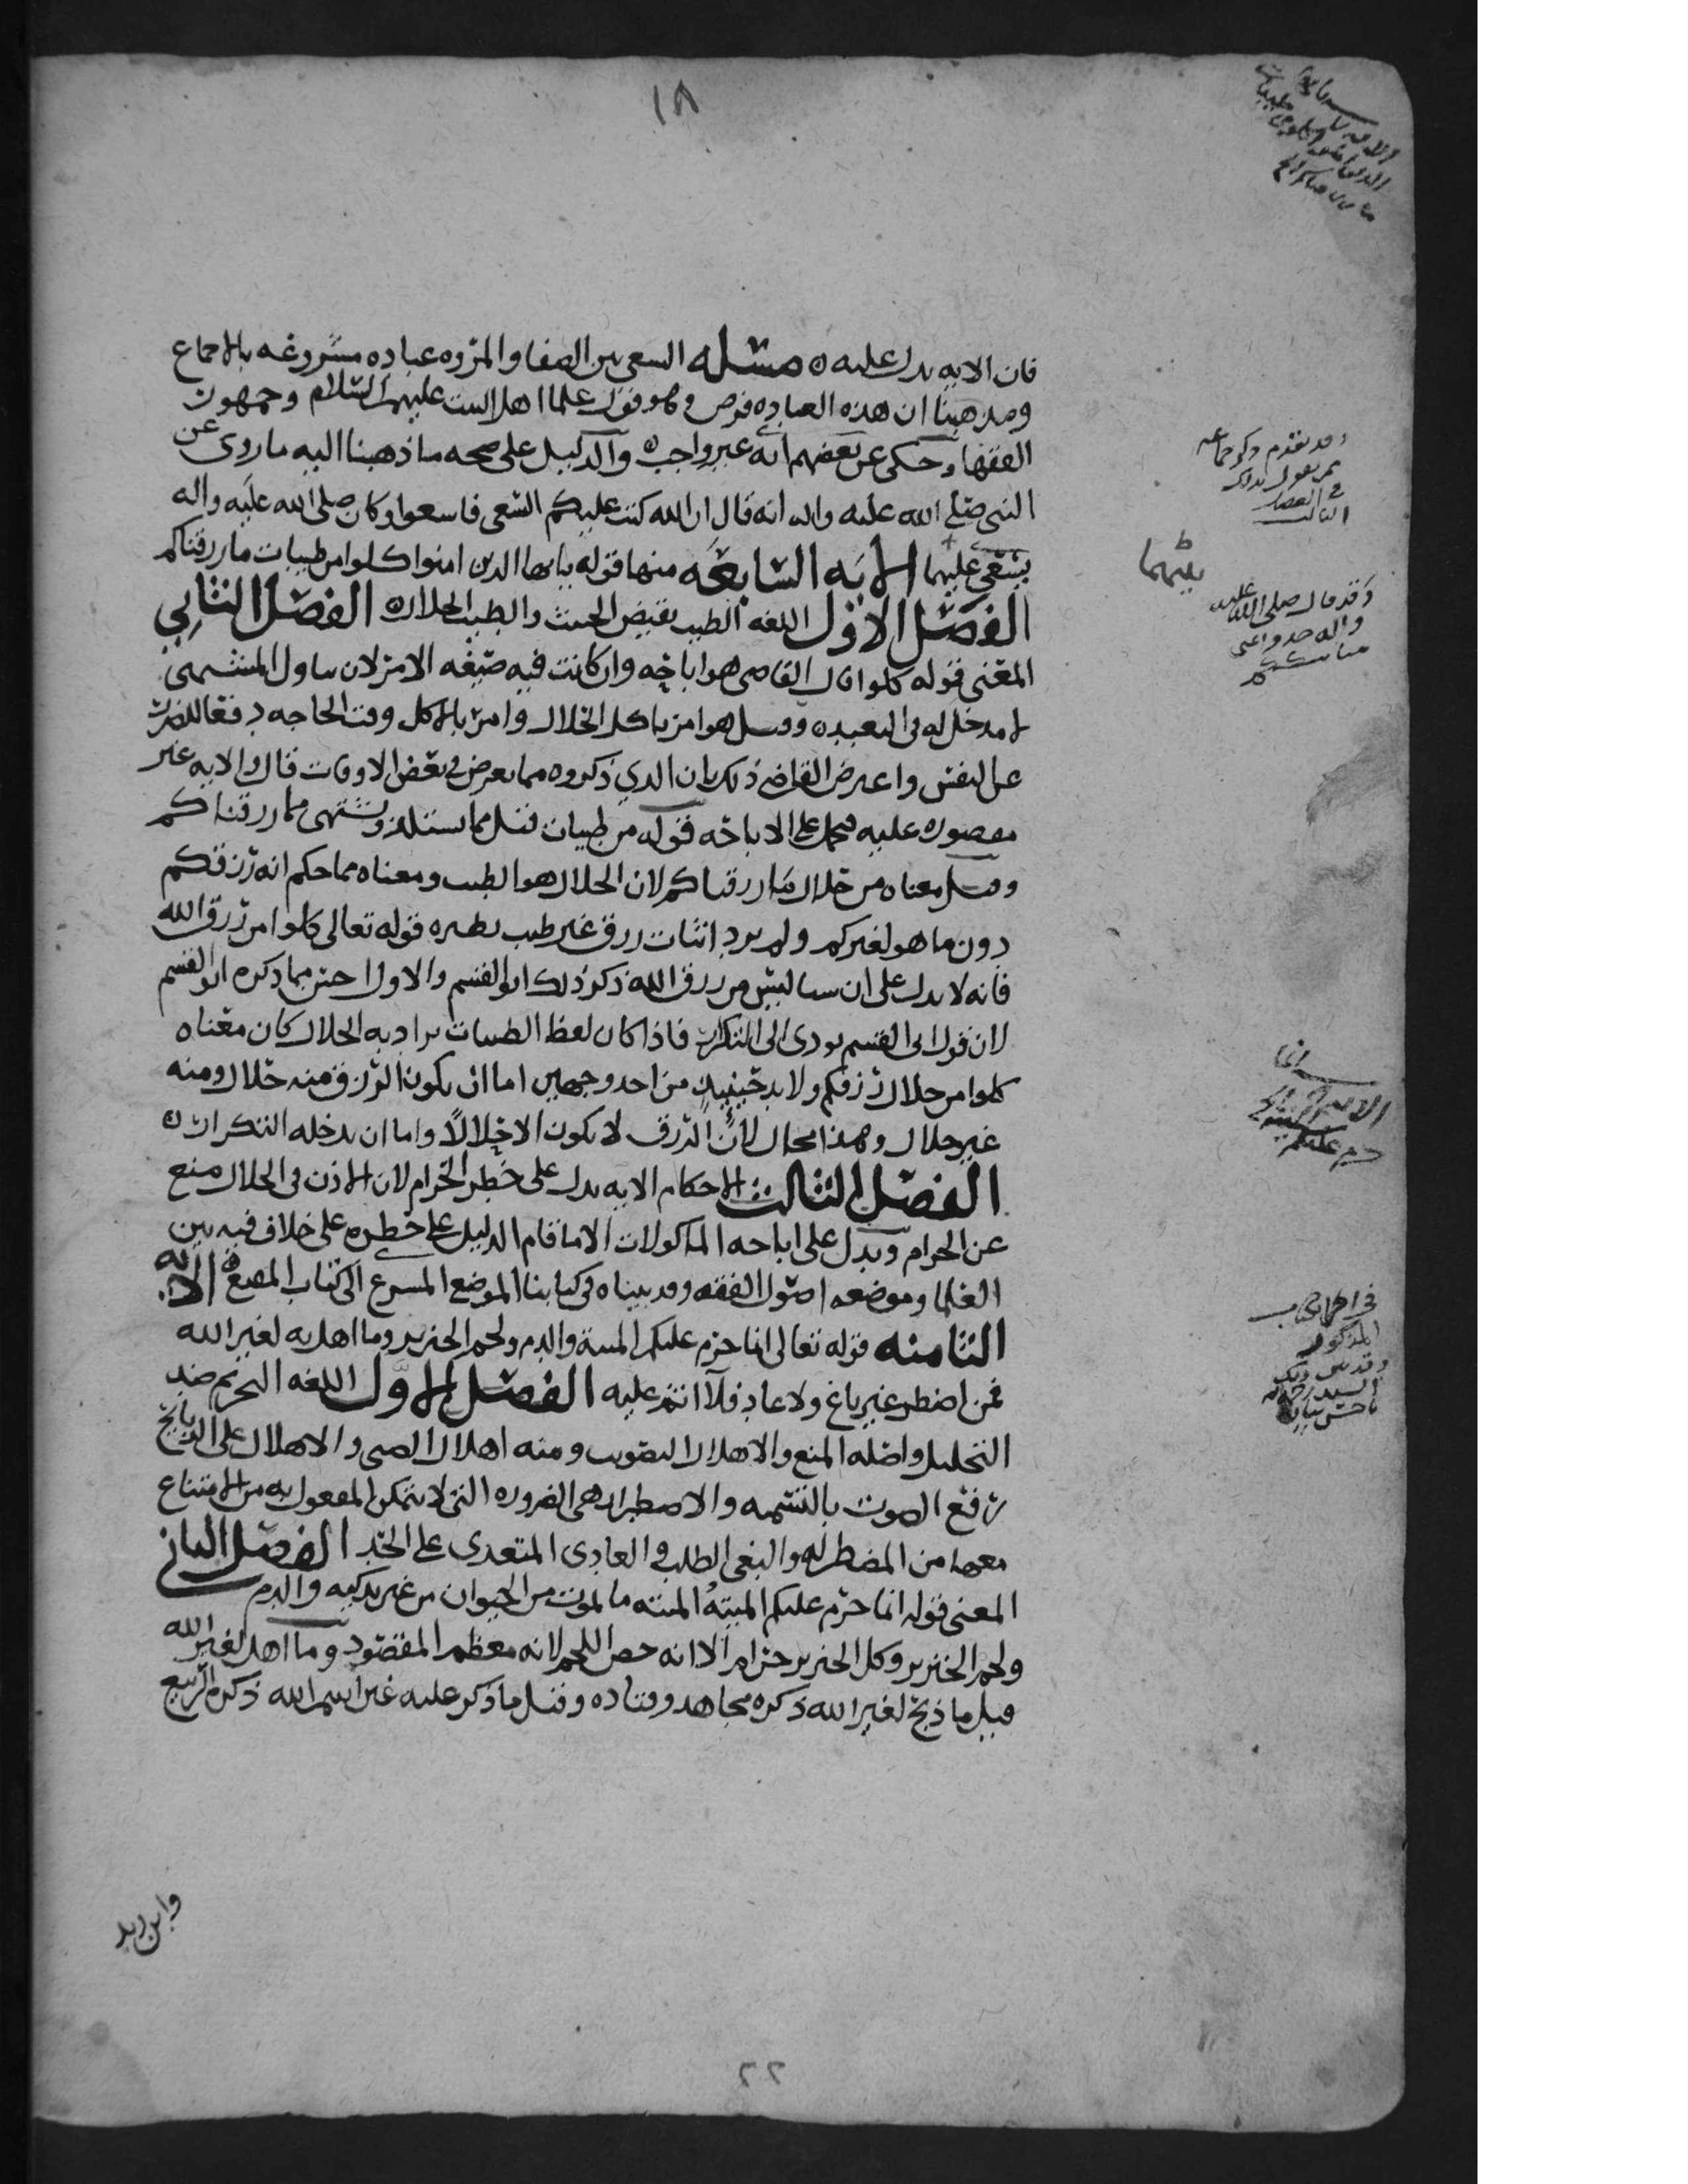 ١٨
فان الايه يدل عليه ه مسئله السعي بين الصفا والمروه عباده مشروعه بالاجماع
ومذهبنا ان هذه العباده فرض وهو قول علما اهل البيت عليهم السلام وجمهور
الفقها وحكى عن بعضهم انه غير واجب ه والدليل على صحه ما ذهبنا اليه ما روي عن
النبي صلى الله عليه واله انه قال ان الله كتب عليكم السعي فاسعوا وكان صلى الله عليه واله
يسعى عليهما الايه السابعه منها قوله يايها الذين امنوا كلوا من طيبات ما رزقناكم
الفصل الاول اللغه الطيب نقيض الخبيث والطيب الحلال ه الفصل الثاني
المعنى قوله كلوا قال القاضي هو اباحه وان كانت فيه صيغه الامر لان تناول المشتهى
لا مدخل له في التعبد ه وقيل هو امر باكل الحلال وامر بالاكل وقت الحاجه دفعا للضرر
عن النفس واعترض القاضي ذلك بان الذي ذكروه مما يعرض في بعض الاوقات قال والايه غير
مقصوره عليه فحمل على الاباحه قوله من طيبات قيل مما يستلذ ويشتهى مما رزقناكم
وقيل معناه من حلال ما رزقناكم لان الحلال هو الطيب ومعناه مما حكم انه رزقكم
دون ما هو لغيركم ولم يرد اثبات رزق غير طيب نظيره قوله تعالى كلوا من رزق الله
فانه لا يدل على ان شيا ليس من رزق الله ذكر ذلك ابو القسم والاول احسن مما ذكره ابو القسم
لان قول ابي القسم يودي الى التكرار فاذا كان لفظ الطيبات يراد به الحلال كان معناه
كلوا من حلال رزقكم ولا بد حينيذ من احد وجهين اما ان يكون الرزق منه حلال ومنه
غير حلال وهذا محال لان الرزق لا يكون الا حلالا واما ان يدخله التكرار ه
الفصل الثالث الاحكام الايه يدل على خطر الحرام لان الاذن في الحلال منع
عن الحرام ويدل على اباحه الماكولات الا ما قام الدليل على خطره على خلاف فيه بين
العلما وموضعه اصول الفقه وقد بيناه في كتابنا الموضع المسرع الى كتاب المصع ه الايه
الثامنه قوله تعالى انما حرم عليكم الميته والدم ولحم الخنزير وما اهل به لغير الله
فمن اضطر غير باغ ولا عاد فلا اثم عليه الفصل الاول اللغه التحريم ضد
التحليل واصله المنع والاهلال التصويت ومنه اهلال الصبي والاهلال على الذبايح
رفع الصوت بالتسميه والاضطرار هي الضروره التي لا يتمكن المفعول به من الامتناع
معها من المضطر له والبغي الطلب والعادي المتعدي على الحد الفصل الثاني
المعنى قوله انما حرم عليكم الميته الميته ما يموت من الحيوان من غير تذكيه والدم
ولحم الخنزير وكل الخنزير حرام الا انه خص اللحم لانه معظم المقصود وما اهل لغير الله
قيل ما ذبح لغير الله ذكره مجاهد وقتاده وقيل ما ذكر عليه غير اسم الله ذكره الربيع
وابن زيد
وقد تقدم ذكر جماعه
ممن يقول بذلك
في الفصل
الثالث
بينهما
وقد قال صلى الله عليه
واله خذوا عني
مناسككم
الايه
حرم عليكم
المذكور
٢٢